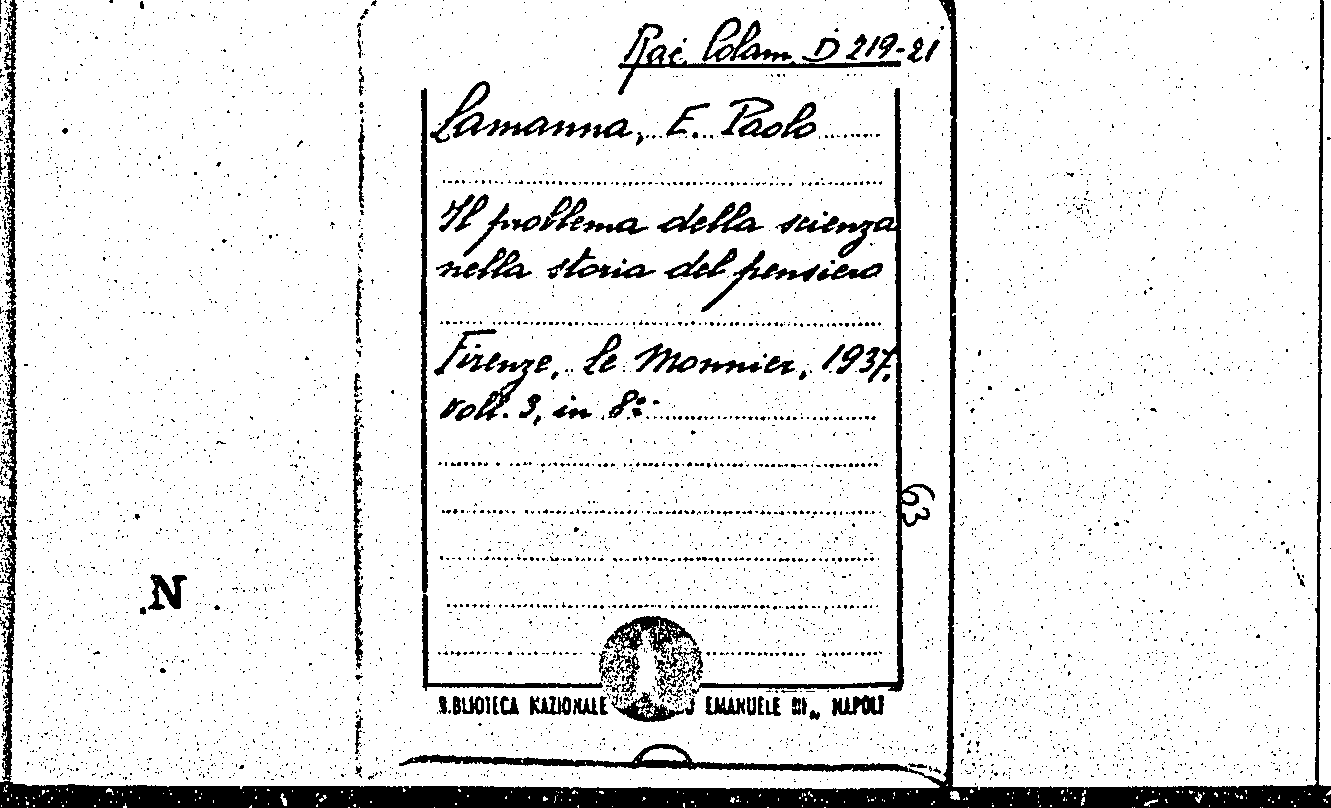 Rac. Colam. D 219-21
Lamanna, E. Paolo
Il problema della scienza
nella storia del pensiero
Firenze, Le Monnier, 1937.
voll. 3, in 8º.
63
N
BIBLIOTECA NAZIONALE EMANUELE III„ NAPOLI